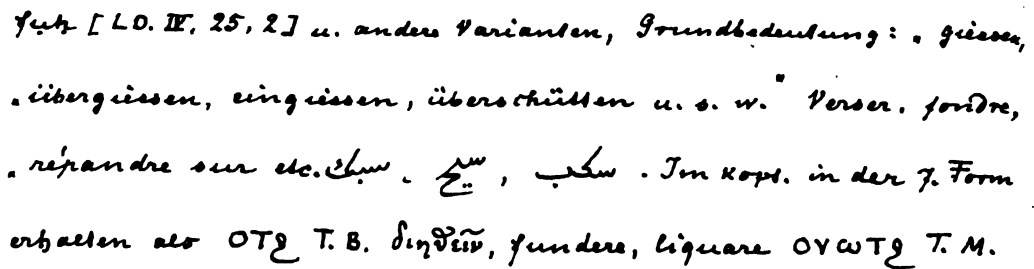 futḥ [LD. IV, 25, 2] u. andere Varianten, Grundbedeutung: „giessen,
„übergiessen, eingiessen, überschütten u. s. w." Verser, fondre,
„répandre sur etc. سبك, سيح, سكب. Im kopt. in der 7. Form
erhalten als ⲟⲧϩ T. B. διηθεῖν, fundere, liquare ⲟⲩⲱⲧϩ T. M.